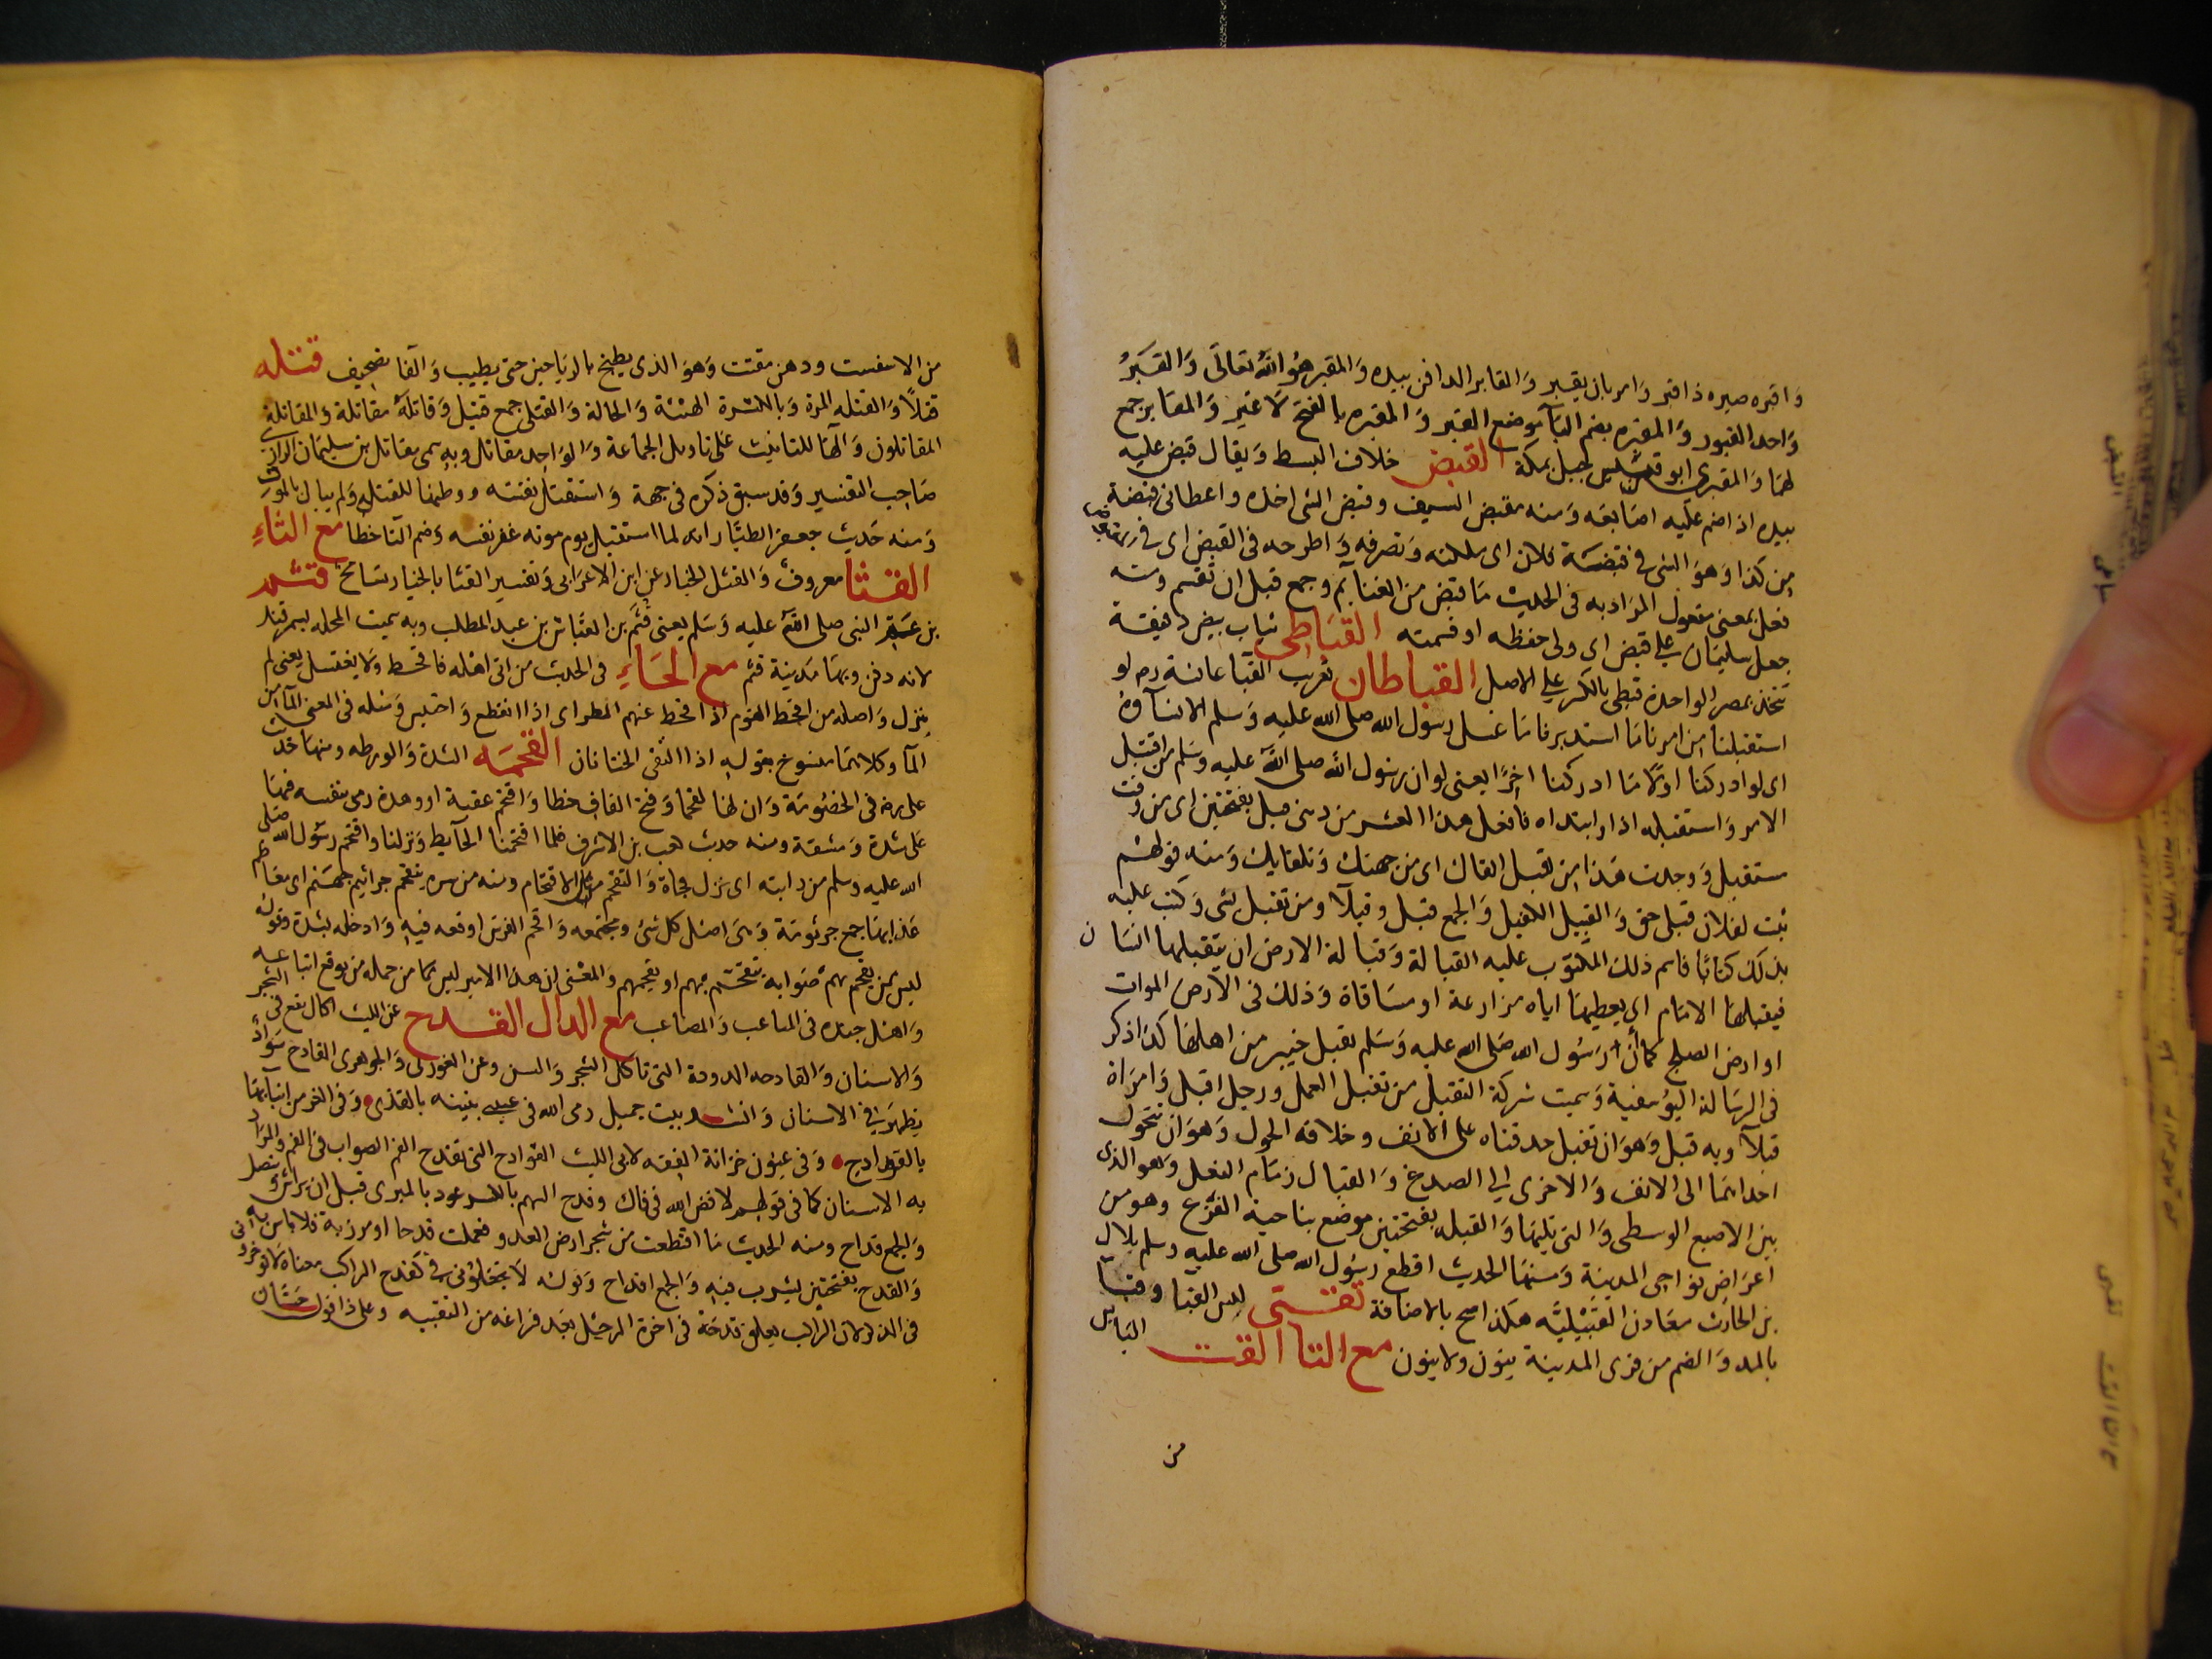 وَاقبره صيره ذا قبر وَامر بان يقبر وَالقابر الدافن بيده وَالمقبر هُو الله تعَالَى وَالقَبرُ
وَاحد القبور وَالمقبره بضم البَآ موضع القبر وَالمقبره بالفتح لاغير وَالمقَابر جمع
لهَا وَالمقبرى ابو قبيس لجبل بمكة القبض خلاف البسط وَيقال قبض عليه
بيده اذا ضم عليه اصَابعَه وَمنه مقبض السيف وقبض الشى اخذه واعطانى قبضة
من كذا وَهوَ الشى فى قبضَة فلان اى ملكته وَتصرفه وَاطرحه فى القبض اى فى
فعل بمعنى مفعول المرَاد به فى الحديث مَا قبض من الغنايم وجمع قبل ان تقسم ومنه
جعل سليمَان على قبض اى ولى حفظه اوقسمته القبَاطى ثياب بيض دقيقة
تتخذ بمصر الواحدة قبطى بالكسر على الاصل القباطان تعريب القبا عائشة رضى لو
استقبلنا من امرنا مَا استدبرنا مَا غسل رسول الله صلى الله عليه وَسلم الا نسَآؤهُ
اى لو ادركنا اولًا مَا ادركنا اخِرًا يعنى لو ان رسُول الله صلى الله عليه وسَلم من اقتبل
الامر وَاستقبله اذا ابتداه فافعل هذا العشر من ذى قبل بفتحتين اى من وقت
مستقبل وَوجدت هَذا من قبل القان اى من جهتك وَتلقايك وَمنه قولهم
ثبت لفلان قبلى حق وَالقبيل الكفيل وَالجمع قبل وقبلآ ومن تقبل بشى وَكتب عليه
بذلك كتَابًا فاسم ذلك المكتوب عليه القبالة وَقبالة الارض ان يتقبلها انسَان
فيقبلهَا الامَام اى يعطيهَا اياه مزارعة اومسَاقاة وَذلك فى الاَرض الموات
اوارض الصلح كما كان رسُول الله صَلى الله عليه وَسَلم يقبل خيبر من اهلهَا كذا ذكر
فى الرسَالة اليُوسفية وَسميت شركة التقبل من تقبل العمل ورجل اقبل وَامرَاة
قبلآ وبه قبل وَهوَ ان تقبل حدقتاه على الانف وخلافه الحول وَهوَ ان تتحول
احداهمَا الى الانف وَالاخرى الى الصدغ وَالقبال زمَام النعل وَهو الذى
بين الاصبع الوسطى وَالتى تليهَا وَالقبله بفتحتين موضع بناحية الفرع وهو من
اعرَاض نواحى المدينة وَمنهَا الحديث اقطع رسُول الله صلى الله عليه وسلم بلال
بن الحَارث معَادن القبَليَّه هكذا صح بالاضافة تقبّى لبس القبا وقبآ
بالمد وَالضم من قرى المدينة ينون ولا ينون مع التا القت اليَابس
من
من الاسفست ودهن مقتت وَهوَ الذى يطبخ بالريَاحين حتى يطيب وَالفا تصحيف قتله
قتلًا وَالقتله المرة وَبالكسرة الهيئة وَالحالة وَالقتلى جمع قتيل وَقاتلهُ مقاتلة وَالمقاتلة
المقاتلون وَالهَا للتانيث عَلى تاويل الجماعة وَالوَاحد مقاتل وبه سمى مقاتل بن سليمَان الرازى
صَاحِب التفسير وَقد سبق ذكره فى جهة وَاستقتل نفسه ووطنها للقتل وَلم يبال بالموت
وَمنه حَديث جعفر الطيَّار انه لما استقتل يوم موته عقر نفسه وَضم التا خطا مع الثاءِ
القثا معروف وَالقثد الخيار عن ابن الاعرَابى وَتفسير القثا بالخيار تسَامح قثم
بن عم النبى صلى الله عليه وَسَلم يعنى قثَم بن العبَّاس بن عبد المطلب وبه سميت المحله بسمرقند
لانه دفن وبهَا مَدينة قثم مع الحَاءِ فى الحديث من اتى اهله فاقحط وَلا يغتسل يعنى لم
ينزل وَاصله من اقحط القوم اذا قحط عنهم المطر اى اذا انقطع وَاحتبس وَمثله فى المعنى الماَ من
المآ وكلاهمَا منسُوخ بقوله اذا التقى الختانان القحمَه الشدة وَالورطه ومنهَا حَديث
على رض فى الخصُومَة وَان لهَا لقحما وَفتح القاف خطا وَاقتحم عقبة اووهدة رمى بنفسه فيهَا
عَلى شدة وَمشقة ومنه حديث كعب بن الاشرف فلما اقتحمنا الحآيط وَنزلنا واقتحم رسُول الله صَلى
الله عليه وسلم من دابته اى نزل فجاة وَالتقحم مثل الاقتحام ومنه من سره يتقحم جراثيم جهَنم اى معَاظم
عَذابهَا جمع جرثومَة وَهىَ اصل كل شئ ومجتمعه وَاقحم الفرس اوقعه فيه وَادخله بشدة وقوله
ليس ممن يقحم بهم صَوابه يتقحّم بهم او يقحمهم والمعْنى ان هذا الامير ليس مما من جمله من يوقع اتباعه
وَاهل جنده فى المتاعب وَالمصاعب مع الدال القدح عن الليث اكال يقع فى الشجر
وَالاسنان وَالقادحه الدودة التى تاكل الشجر وَالسن وعن الغورى وَالجوهرى القادح سَوادٌ
يظهَر فى الاسنان وَانشد بيت جميل رمى الله فى عينى بثينه بالقذى وَفى الغر من انيابهَا
بالقوادح وَفى عيون خزانة الفقه لابى الليث القوادح التى تقدح الفم الصواب فى الفم وَالمرَاد
به الاسنان كما فى قولهم لا فض الله فى فاك وقدح السهم بالكسر عود بالمبرى قبل ان يراش وينصل
وَالجمع قداح ومنه الحديث مَا اقتطعت من شجر ارض العدو فعملت قدحا او مرزبة فلا باس به
وَالقدح بفتحتين يشرب فيه وَالجمع اقداح وَقوله لا تجعلُونى فى كقدح الراكب معناه لا توخرونى
فى الذكر لان الراكب يعلق قدحَه فى اخرة الرحل بعَد فراغه من التعبيه وعلى ذا قول حسَّان